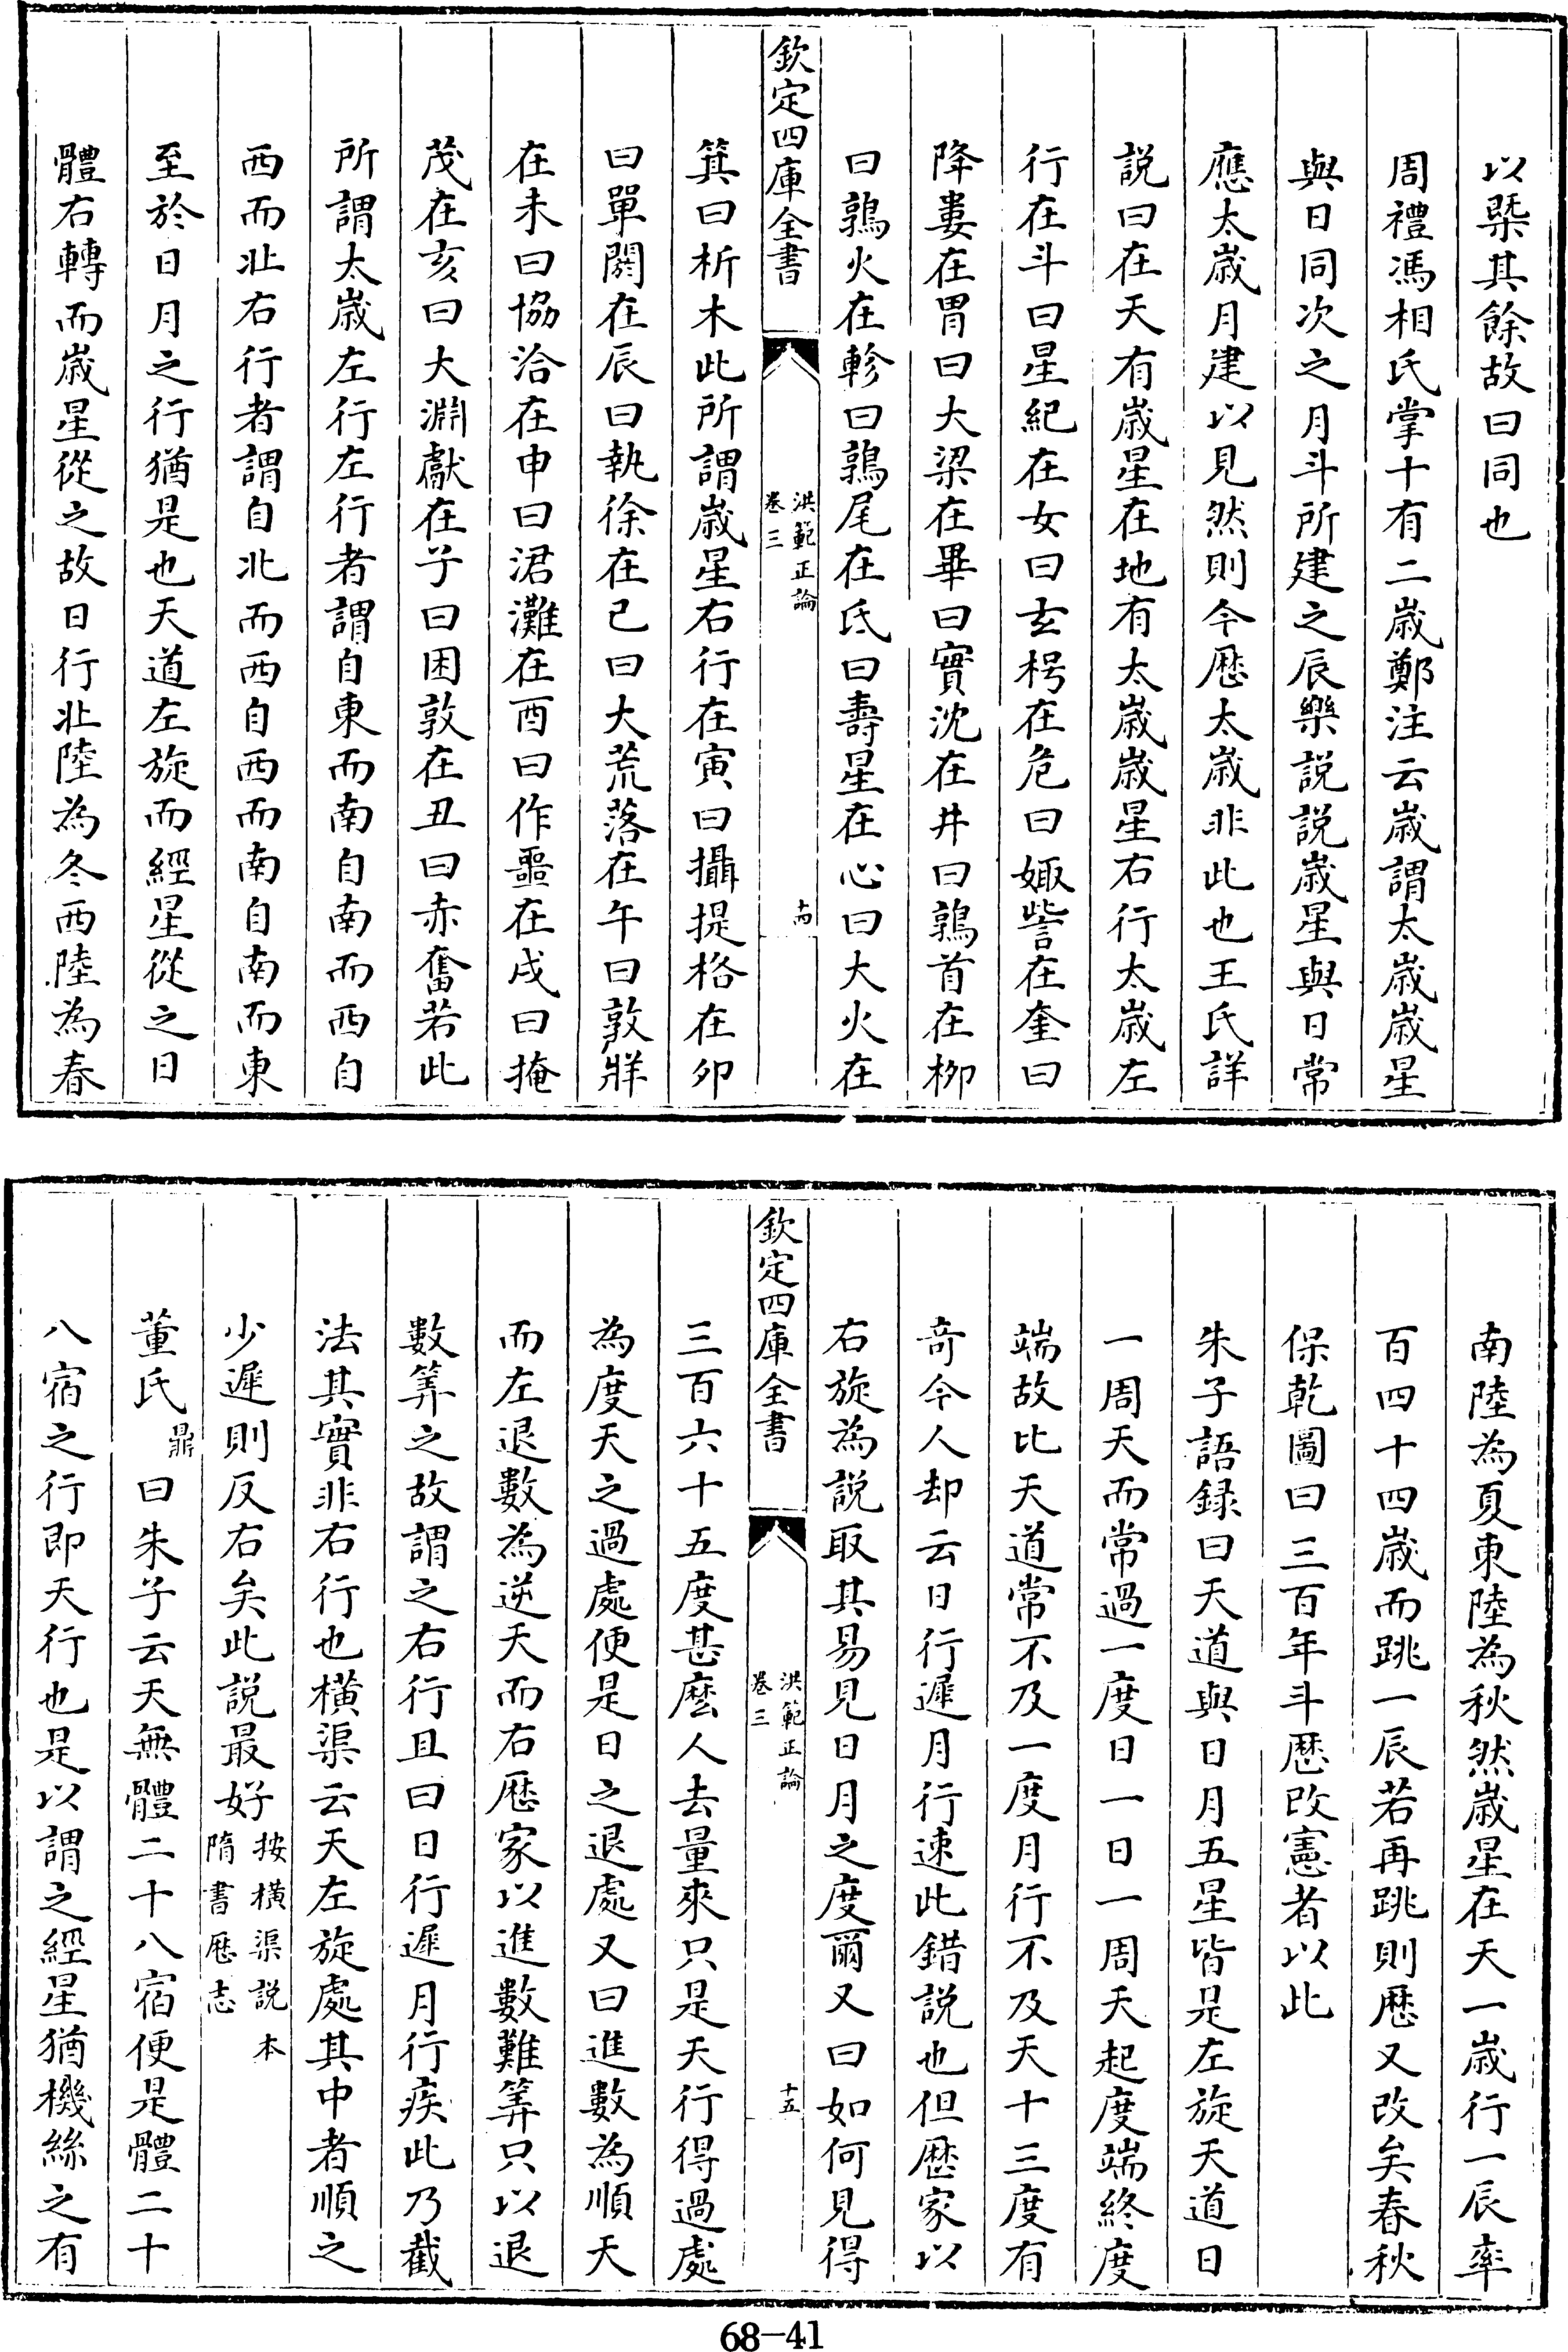 以槩其餘故曰同也
周禮馮相氏掌十有二歲鄭注云歲謂太歲歲星
與日同次之月斗所建之辰樂説説歲星與日常
應太歲月建以見然則今厯太歲非此也王氏詳
説曰在天有歲星在地有太歲歲星右行太歲左
行在斗曰星紀在女曰玄枵在危曰娵訾在奎曰
降婁在胃曰大梁在畢曰實沈在井曰鶉首在栁
曰鶉火在軫曰鶉尾在氐曰壽星在心曰大火在
欽定四庫全書
洪範正論
卷三
十四
箕曰析木此所謂歲星右行在寅曰攝提格在卯
曰單閼在辰曰執徐在巳曰大荒落在午曰敦牂
在未曰協洽在申曰涒灘在酉曰作噩在戌曰掩
茂在亥曰大淵獻在子曰困敦在丑曰赤奮若此
所謂太歲左行左行者謂自東而南自南而西自
西而北右行者謂自北而西自西而南自南而東
至於日月之行猶是也天道左旋而經星從之日
體右轉而歲星從之故日行北陸為冬西陸為春
南陸為夏東陸為秋然歲星在天一歲行一辰率
百四十四歲而跳一辰若再跳則厯又改矣春秋
保乾圖曰三百年斗厯改憲者以此
朱子語録曰天道與日月五星皆是左旋天道日
一周天而常過一度日一日一周天起度端終度
端故比天道常不及一度月行不及天十三度有
奇今人却云日行遲月行速此錯説也但厯家以
右旋為説取其易見日月之度爾又曰如何見得
欽定四庫全書
洪範正論
卷三
十五
三百六十五度甚麽人去量來只是天行得過處
為度天之過處便是日之退處又曰進數為順天
而左退數為逆天而右厯家以進數難筭只以退
數筭之故謂之右行且曰日行遲月行疾此乃截
法其實非右行也橫渠云天左旋處其中者順之
少遲則反右矣此説最好按橫渠説本隋書厯志
董氏鼎曰朱子云天無體二十八宿便是體二十
八宿之行即天行也是以謂之經星猶機絲之有
68-41